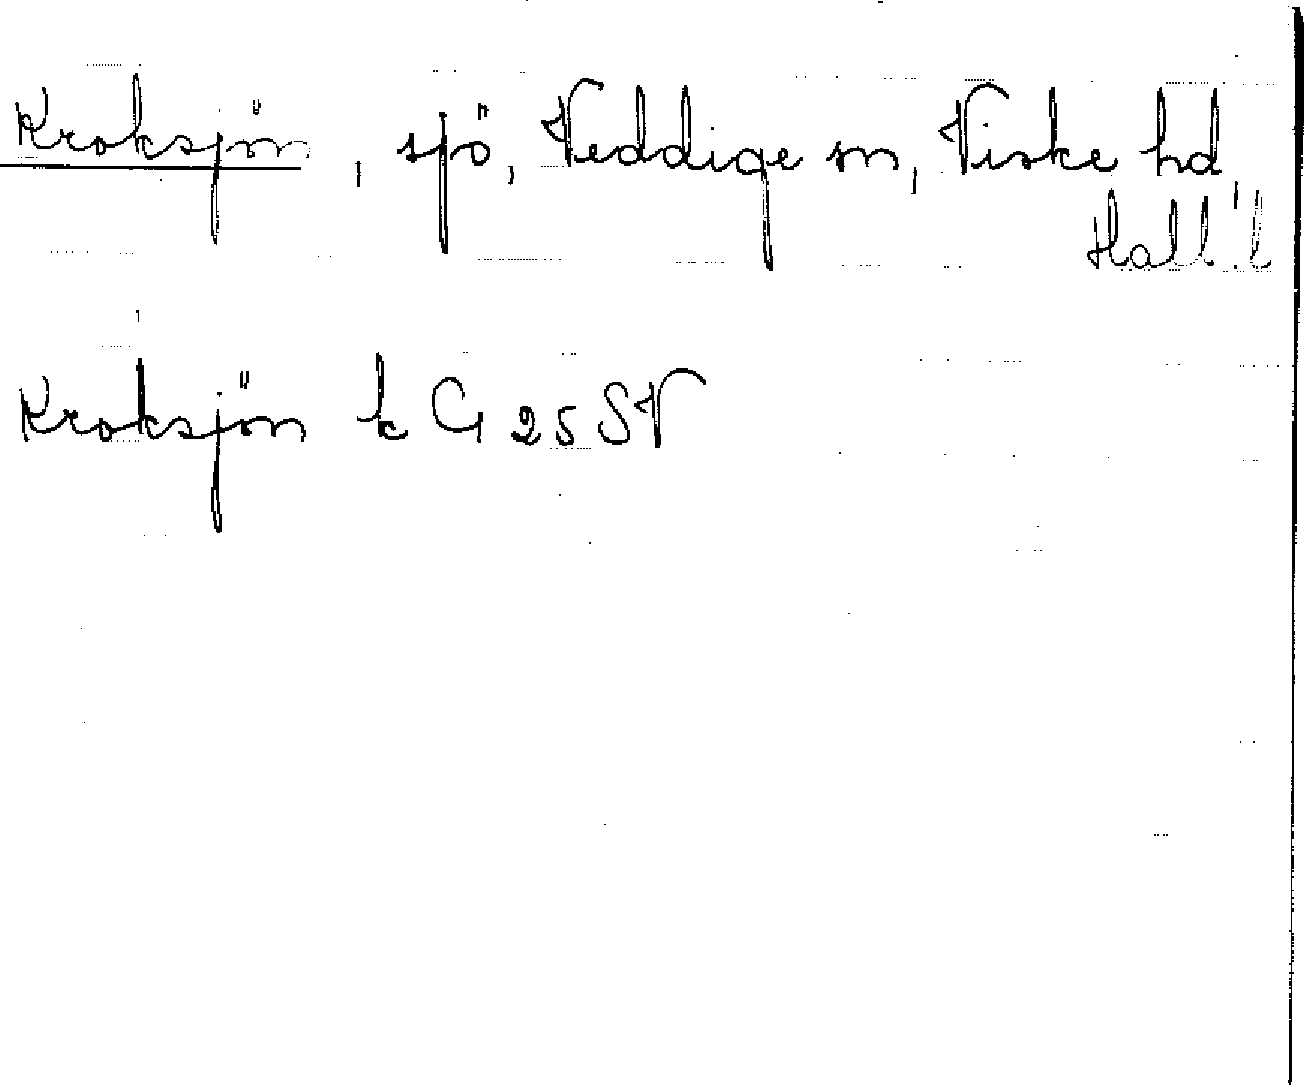 Kroksjön, sjö, Veddige sn, Viske hd,
Hall. l
Kroksjön k G 25 SV